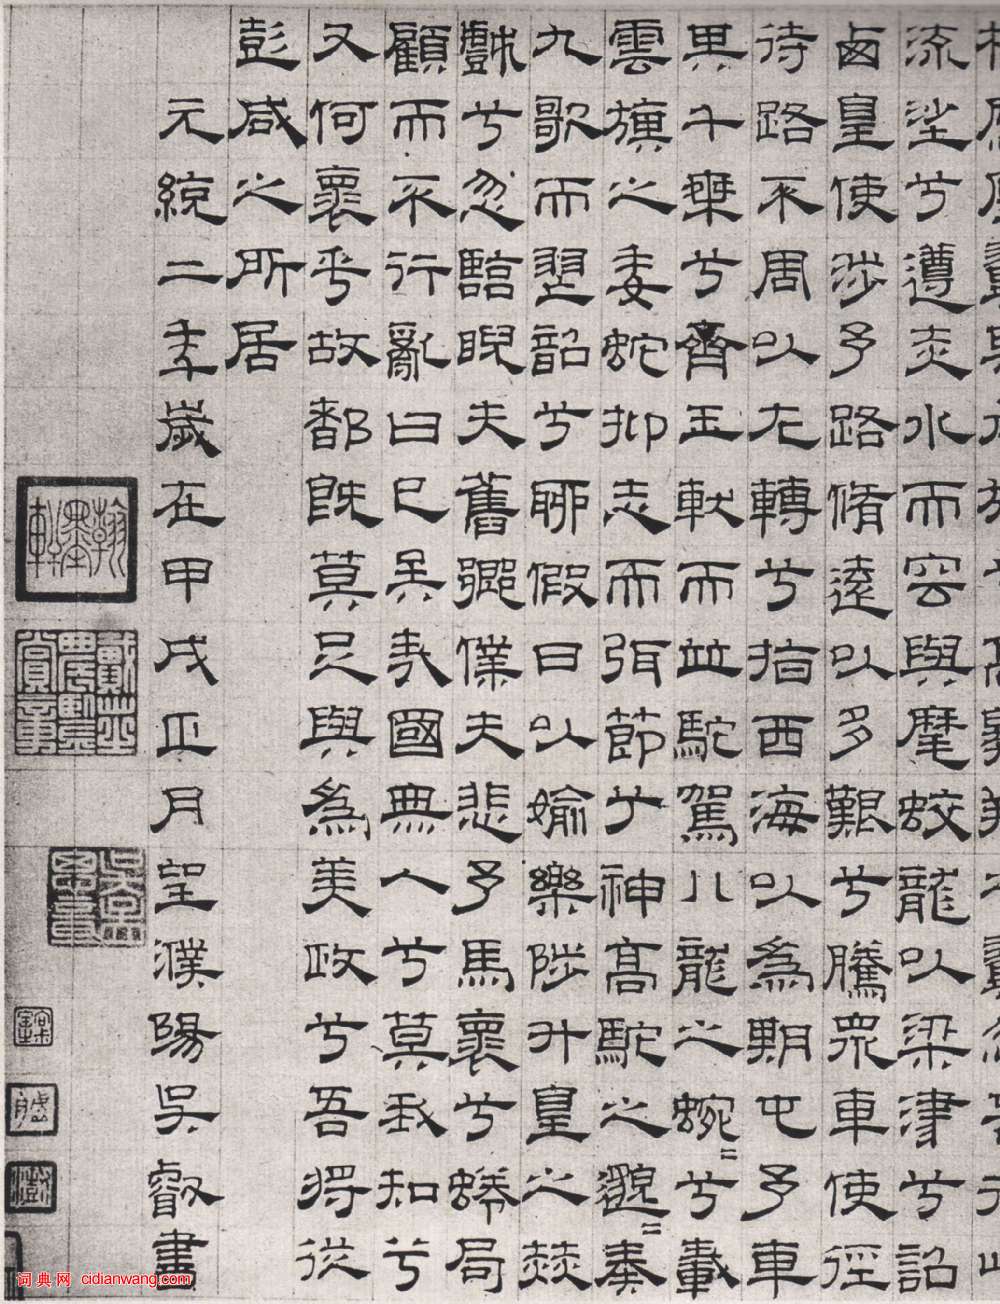 流沙兮遵赤水而容與麾蛟龍以梁津兮詔
西皇使涉予路脩遠以多艱兮騰眾車使徑
待路不周以左轉兮指西海以為期屯予車
其千乘兮齊玉軑而並馳駕八龍之蜿〻兮載
雲旗之委蛇抑志而弭節兮神高馳之邈〻奏
九歌而舞韶兮聊假日以媮樂陟升皇之赫
戲兮忽臨睨夫舊鄉僕夫悲予馬懷兮蜷局
顧而不行亂曰已矣哉國無人兮莫我知兮
又何懷乎故都既莫足與為美政兮吾將從
彭咸之所居
元統二年歲在甲戌正月望濮陽吳叡書
翰墨軒
词典网 cidianwang.com